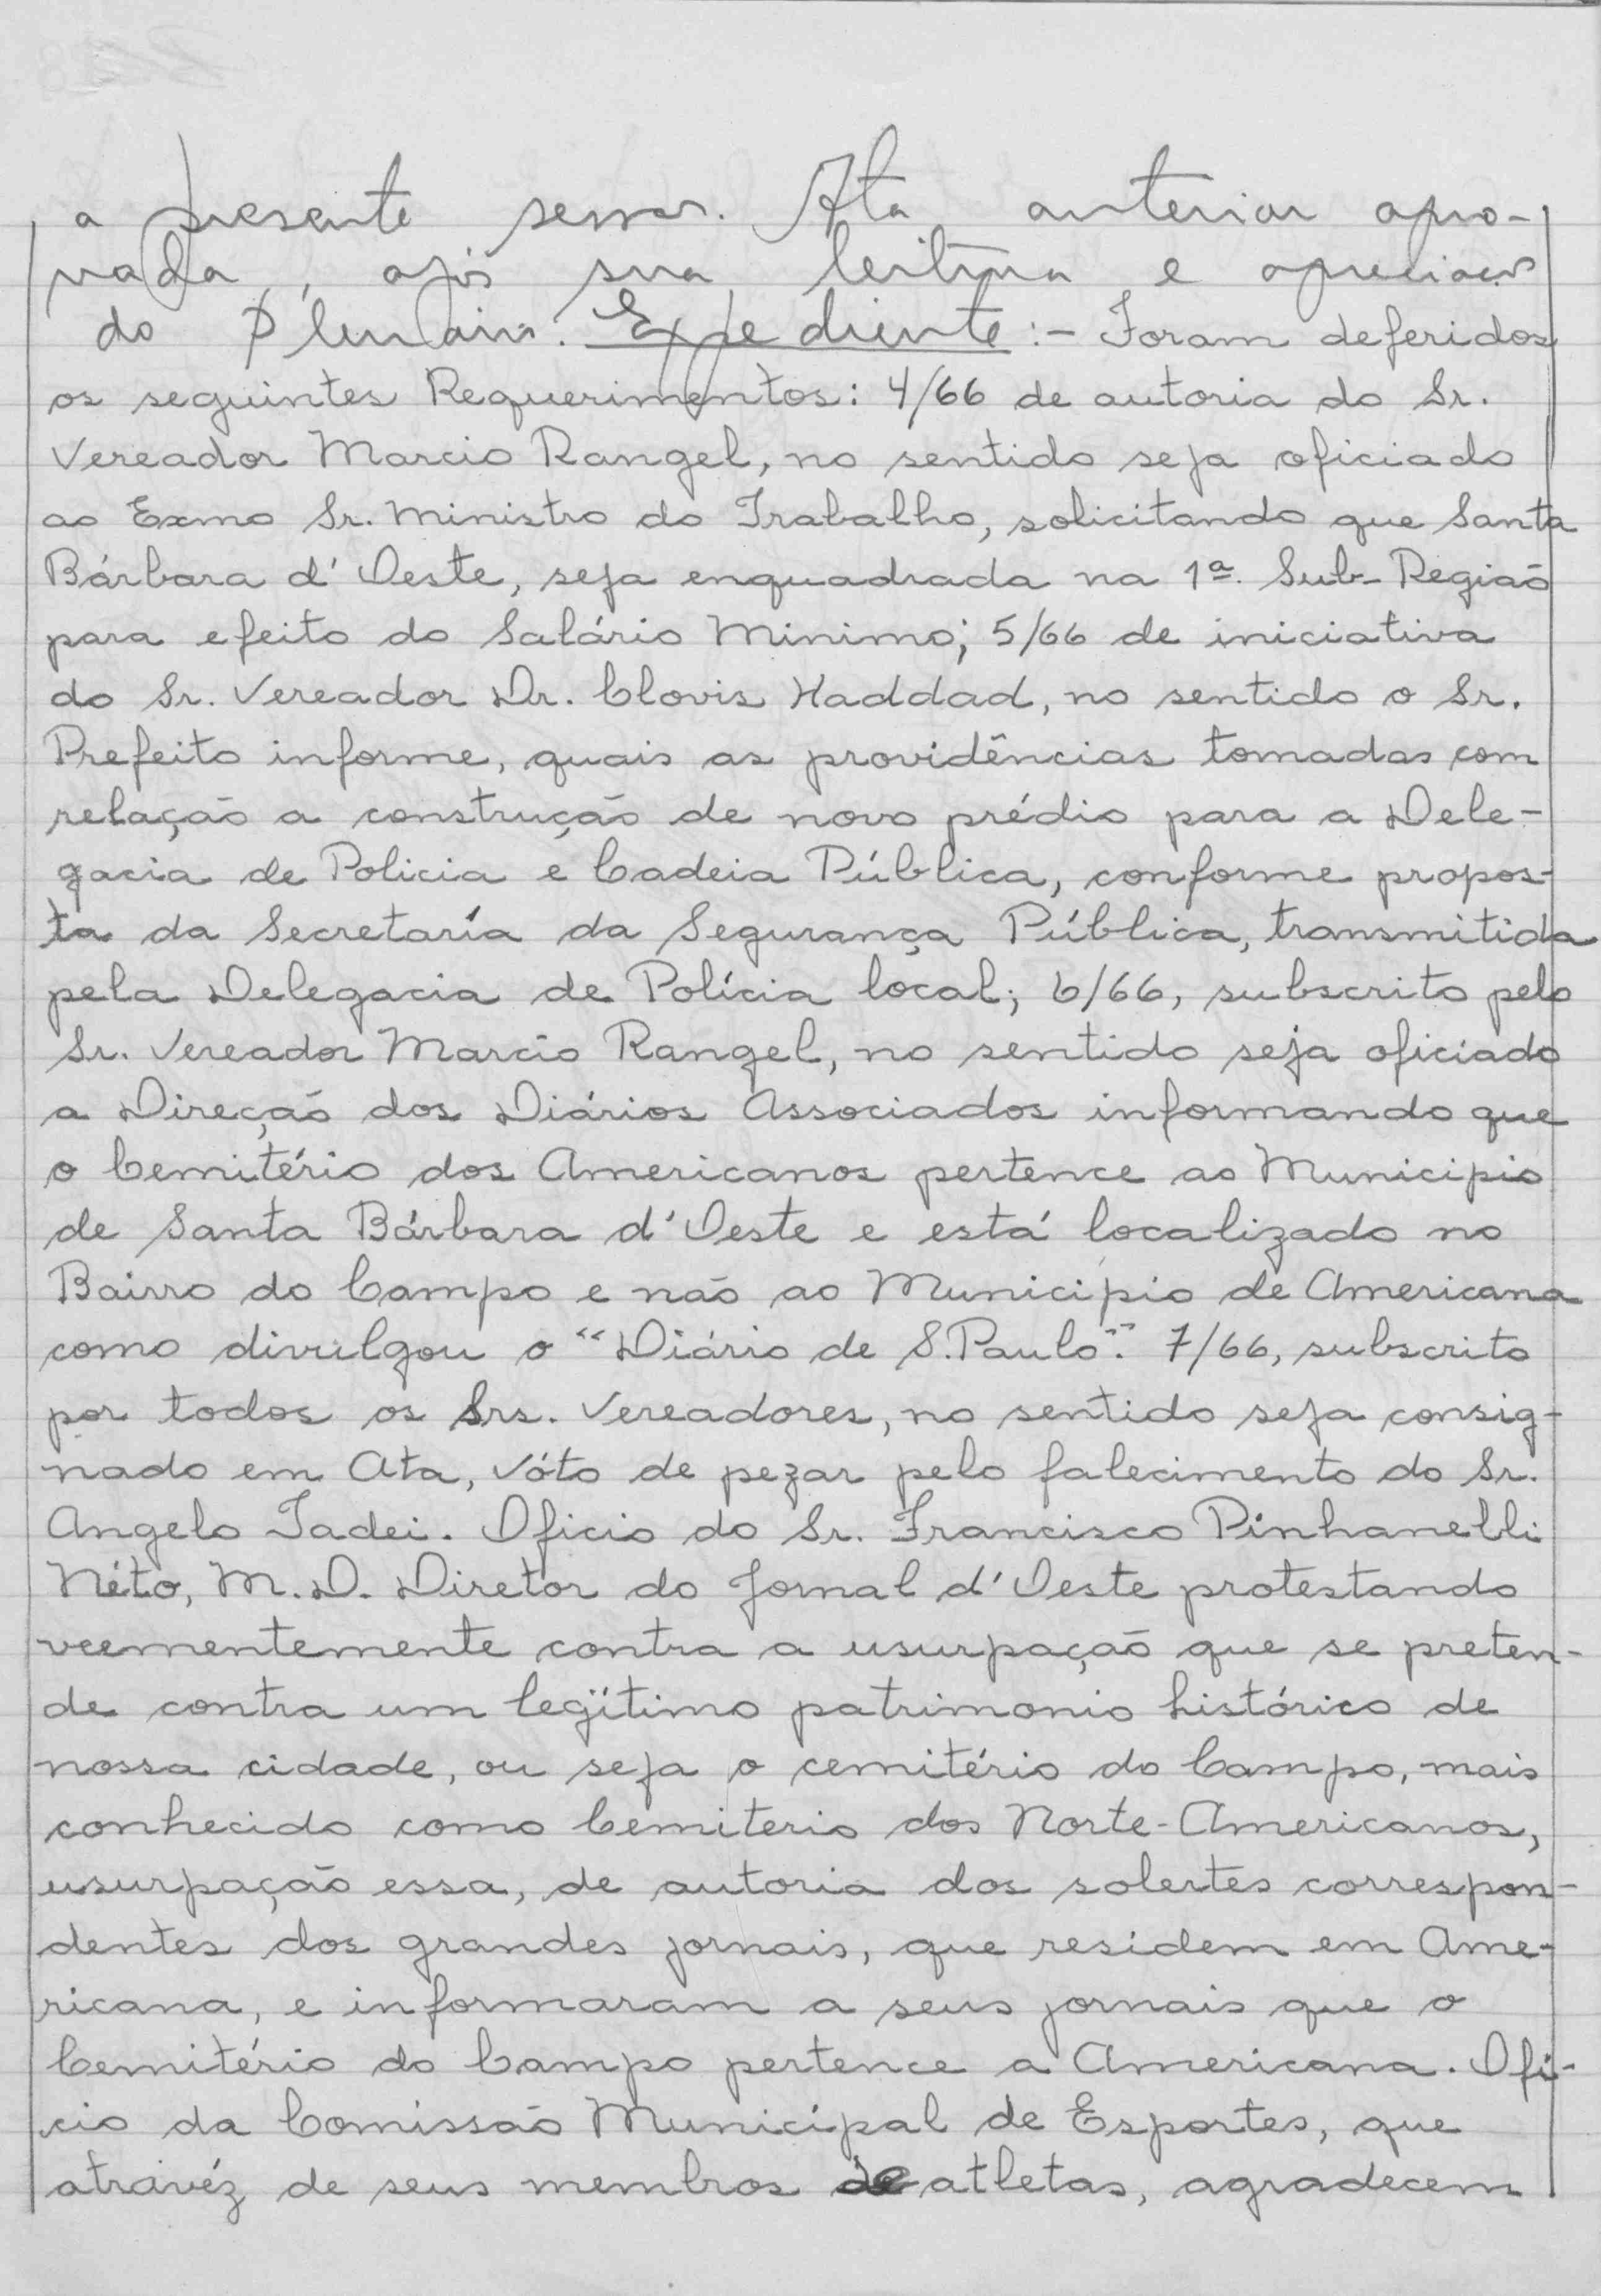 a presente sessão. Ata anterior apro-
vada, após sua leitura e apreciação
do Plenário. Expediente:- Foram deferidos
os seguintes Requerimentos: 4/66 de autoria do Sr.
Vereador Marcio Rangel, no sentido seja oficiado
ao Exmo Sr. Ministro do Trabalho, solicitando que Santa
Bárbara d'Oeste, seja enquadrada na 1ª. Sub-Região
para efeito do Salário Minimo; 5/66 de iniciativa
do Sr. Vereador Dr. Clovis Haddad, no sentido o Sr.
Prefeito informe, quais as providências tomadas com
relação a construção de novo prédio para a Dele-
gacia de Policia e Cadeia Pública, conforme propos-
ta da Secretaría da Segurança Pública, transmitida
pela Delegacia de Polícia local; 6/66, subscrito pelo
Sr. Vereador Marcio Rangel, no sentido seja oficiado
a Direção dos Diários Associados informando que
o Cemitério dos Americanos pertence ao Municipio
de Santa Bárbara d'Oeste e está localizado no
Bairro do Campo e não ao Município de Americana
como divulgou o "Diário de S. Paulo". 7/66, subscrito
por todos os Srs. Vereadores, no sentido seja consig-
nado em Ata, vóto de pezar pelo falecimento do Sr.
Angelo Tadei. Oficio do Sr. Francisco Pinhanelli
Néto, M.D. Diretor do Jornal d'Oeste protestando
veementemente contra a usurpação que se preten-
de contra um legítimo patrimonio histórico de
nossa cidade, ou seja o cemitério do Campo, mais
conhecido como Cemiterio dos Norte-Americanos,
usurpação essa, de autoria dos solertes correspon-
dentes dos grandes jornais, que residem em Ame-
ricana, e informaram a seus jornais que o
Cemitério do Campo pertence a Americana. Ofí-
cio da Comissão Municipal de Esportes, que
atravéz de seus membros e atletas, agradecem